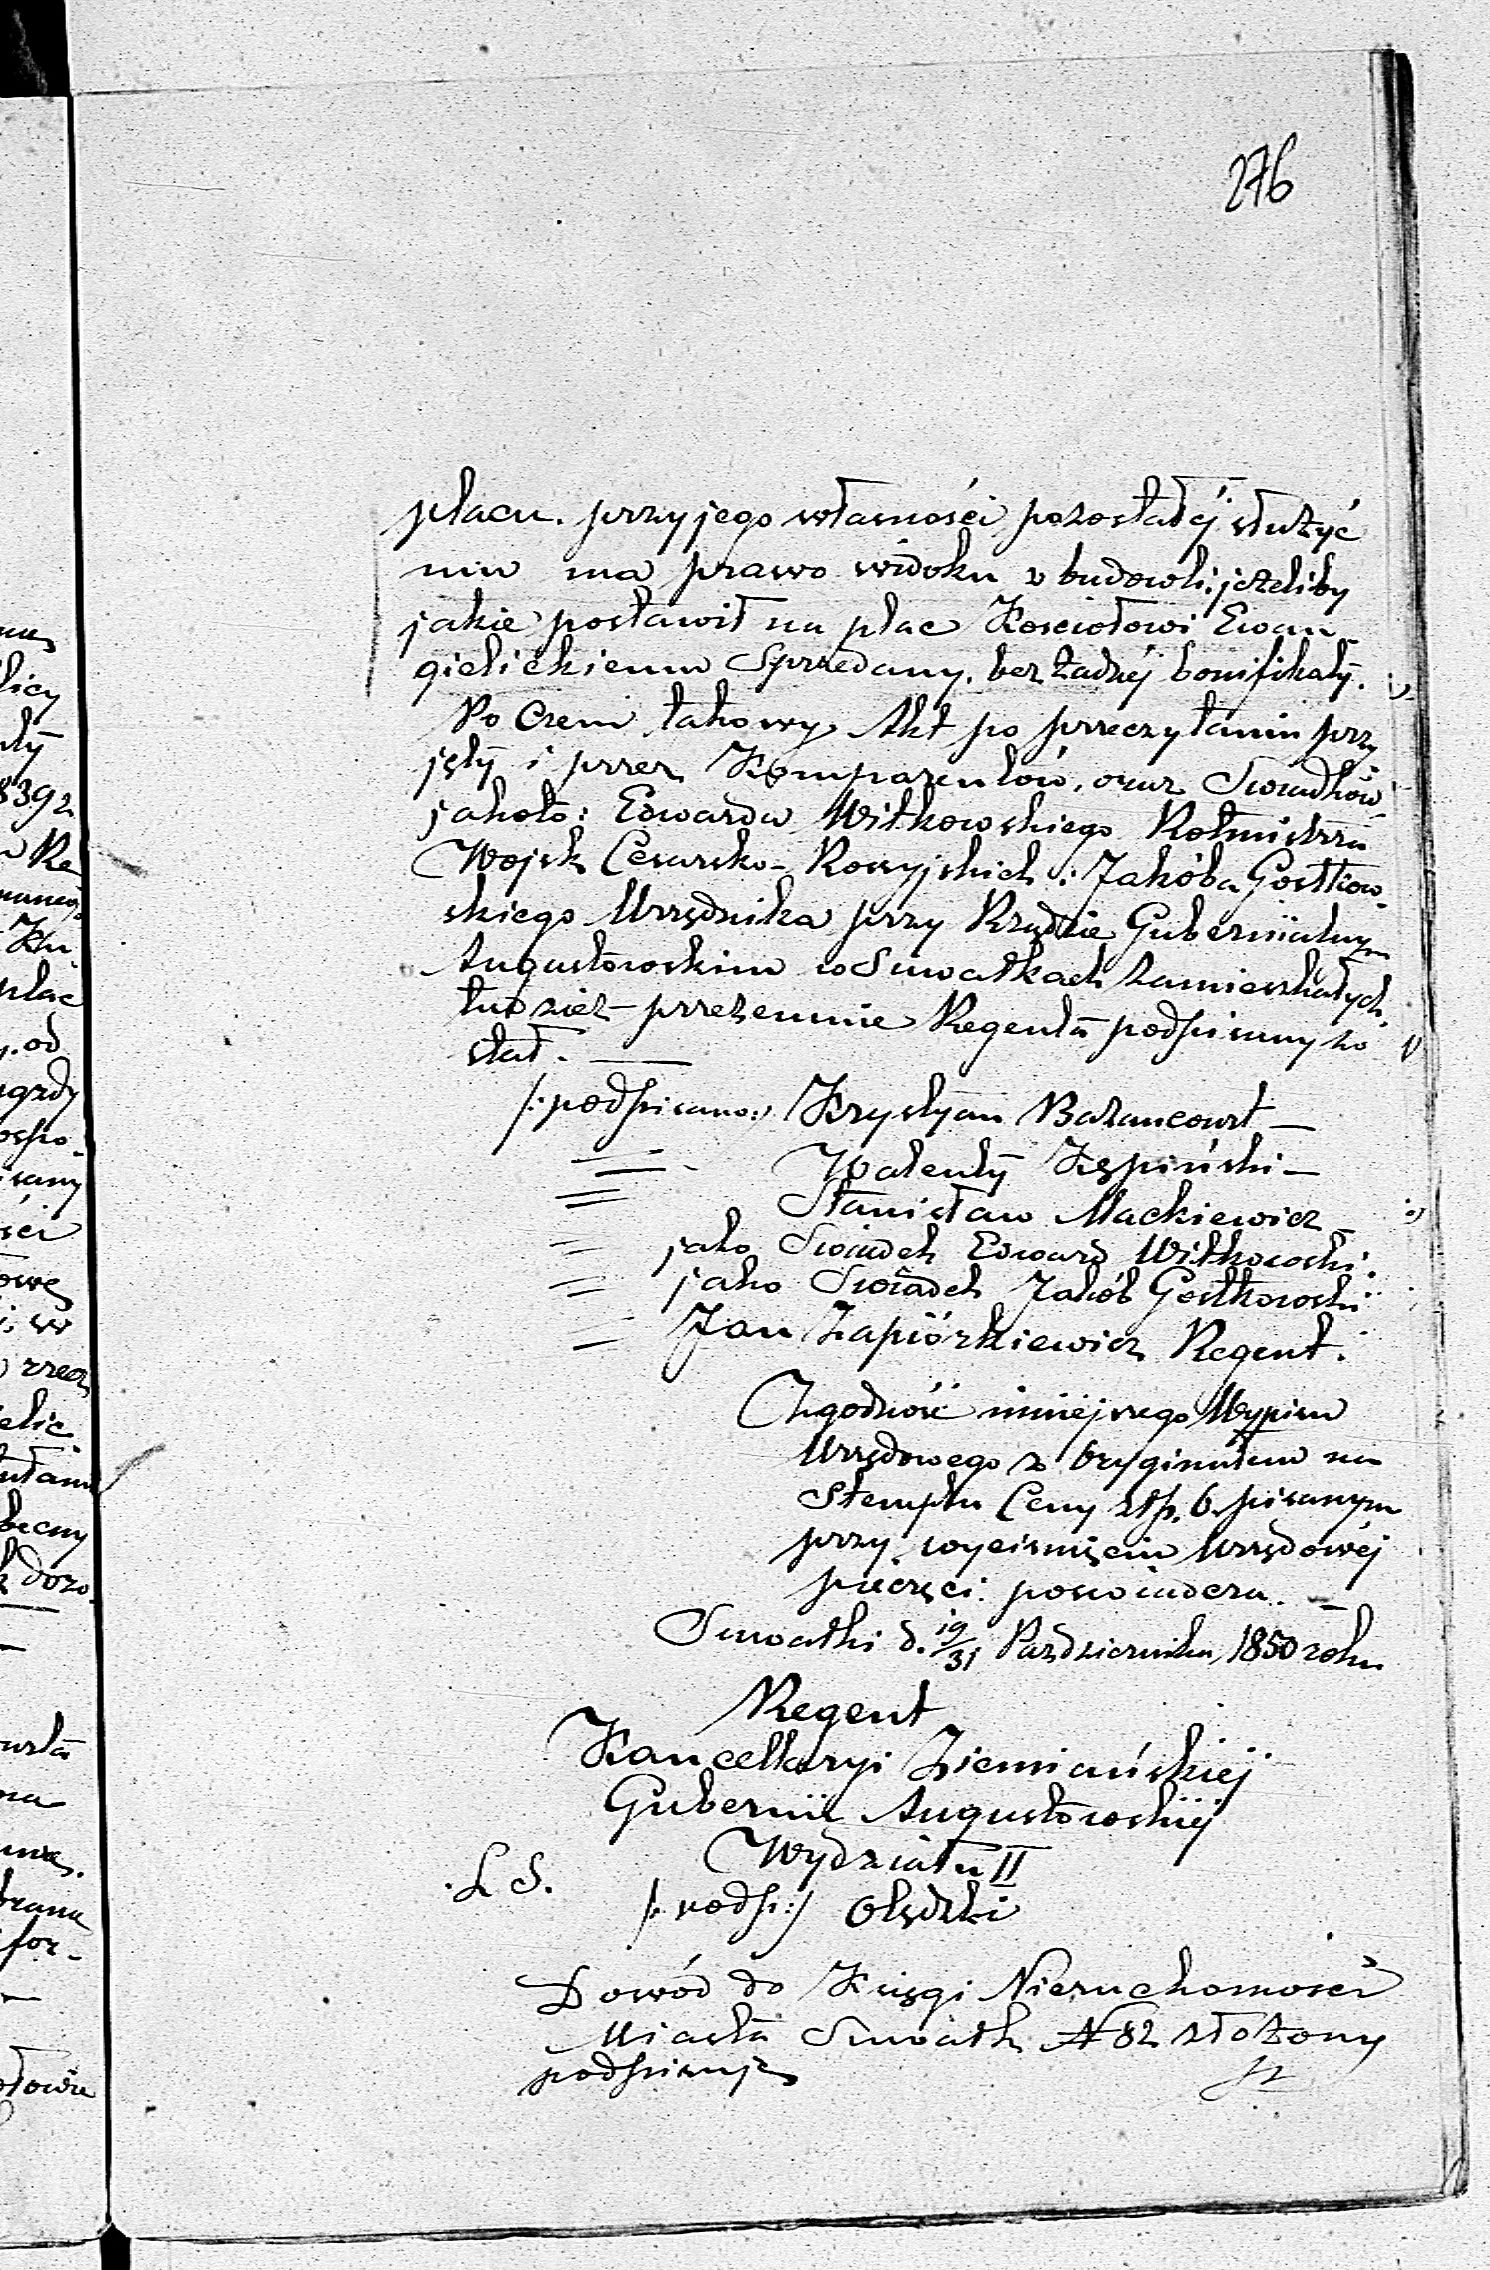 276
placu. przy jego własności pozostałéj służyć
mu ma prawo widoku z budowli, jeżeliby
jakie postawił na plac Kościołowi Ewan-
gielickiemu Sprzedany, bez żadnéj bonifikaty.
Po Czem takowy Akt po przeczytaniu przy
jęty i przez Komparentów, oraz Swiadków
jakoto: Edwarda Witkowskiego Rotmistrza
Wojsk Cesarsko-Rossyjskich i Jakóba Gostkow-
skiego Urzędnika przy Rządzie Gubernialnym
Augustowskim w Suwałkach zamieszkałych,
tudzież przezemnie Regenta podpisany zo
stał.
/:podpisano:/ Krystyan Bazancourt
Walenty Kępiński
Stanisław Mackiewicz
jako Swiadek Edward Witkowski.
jako Swiadek Jakób Gostkowski
Jan Zapiórkiewicz Regent.
Zgodność niniejszego Wypisu
Urzędowego z Oryginałem na
Stemplu Ceny złp. 6. pisanym
przy wyciśnięciu Urzędowéj
pieczęci poswiadcza.
Suwałki d. 19/31 Października 1850 roku
Regent
Kancellaryi Ziemiańskiéj
Gubernii Augustowskiéj
Wydziału II
L S.
/:podp:/ Olędzki
Dowód do Księgi Nieruchomości
Miasta Suwałk N 82 złożony
podpisuję